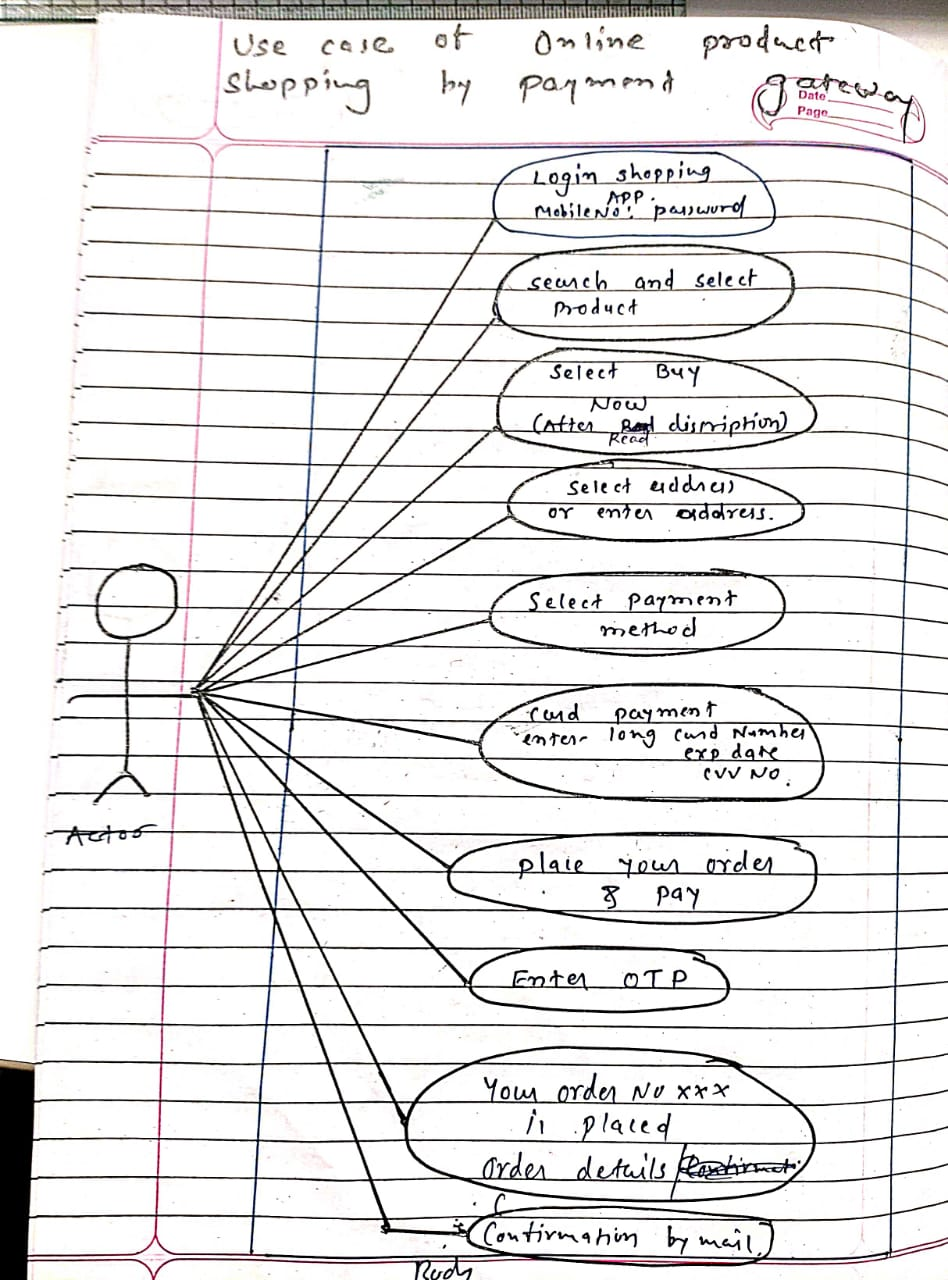 Use case of Online product
shopping by payment gateway
Date
Page
Login shopping
APP.
Mobile No: password
search and select
product
Select Buy
Now
(After Read discription)
Select address
or enter address.
Select payment
method
Card payment
enter- long Card Number
exp date
CVV NO.
Actor
place your order
& pay
Enter OTP
Your order No xxx
is placed
Order details/
Confirmation by mail.